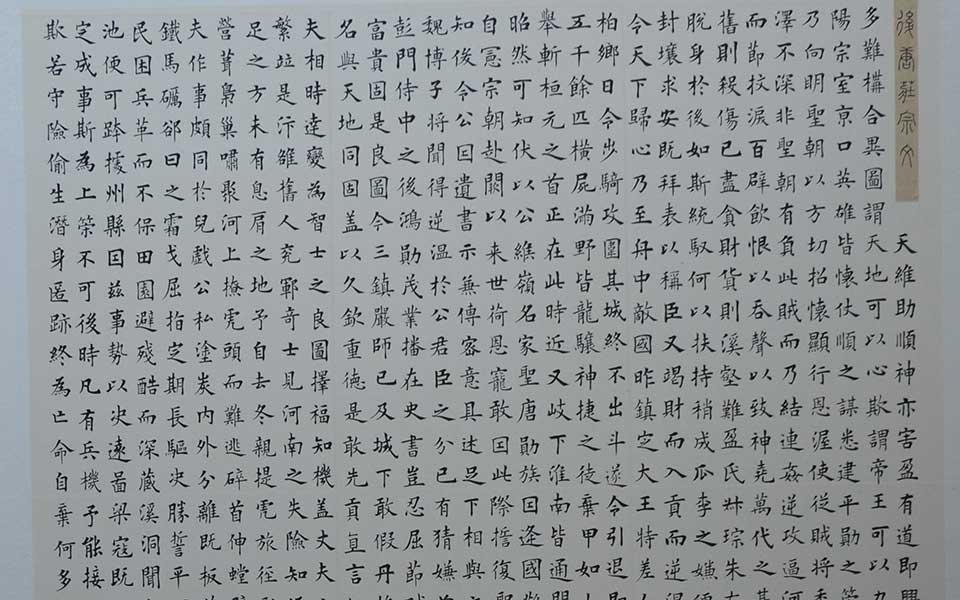 後唐莊宗文
天維助順神亦害盈有道即興
多難構合異圖謂天地可以心欺謂帝王可以力
陽宗室京口英雄皆懷仗順之謀悉建平勳之策
乃向明聖朝以方切招懷顯行恩渥使從賊將委
澤不深非聖朝有負此賊而乃結連姦逆攻逼河
而節抆淚百辟飲恨以吞聲以致神堯萬代之基
舊則殺傷已盡貪財貨則溪壑難盈氏叔琮朱友
脫身於後如斯統馭何以扶持稍成瓜李之嫌
封壤求安既拜表以稱臣又竭財而入貢而逆溫
今天下歸心乃至舟中敵國昨鎮定大王特差人
柏鄉日令步騎攻圍其城終不出斗遂令引退
五千餘匹橫屍滿野皆龍驤神捷之徒棄甲如山
舉斬桓元之首正在此時近又岐下淮南皆通間
昭然可知伏以公維嶺名家聖唐勛族因逢國
自憲宗朝赴闕以来世荷恩寵敢因此際擔復聖
知俊令公回遺書示兼傳密意具述足下相與
魏博子將聞得逆溫於公君臣之分已有猜嫌
彭門侍中之後鴻勛茂業播在史書豈忍屈節
富貴固是良圖今三鎮嚴師已及城下敢假丹
名與天地同固盖以久欽重德是敢先貢直言
夫相時達變為智士之良圖擇福知機盖丈夫
繁竝是汴雒舊人兖鄆奇士見河南之失險知
足之方未有息肩之地予自去冬親提虎旅徑
營葺梟巢嘯聚河上撫虎頭而難逃碎首伸螳
夫作事頗同於兒戲公私塗炭内外分離既板
鐵馬礪郤曰之霜戈屈指定期長驅決勝誓平
民困兵革而不保田園避殘酷而深藏溪洞聞
池便可跨據州縣囙茲事勢以決遠啚梁寇既
定成事斯為上榮不可後時凡有兵機予能接
欺若守險偷生潛身匿跡終為亡命自棄何多